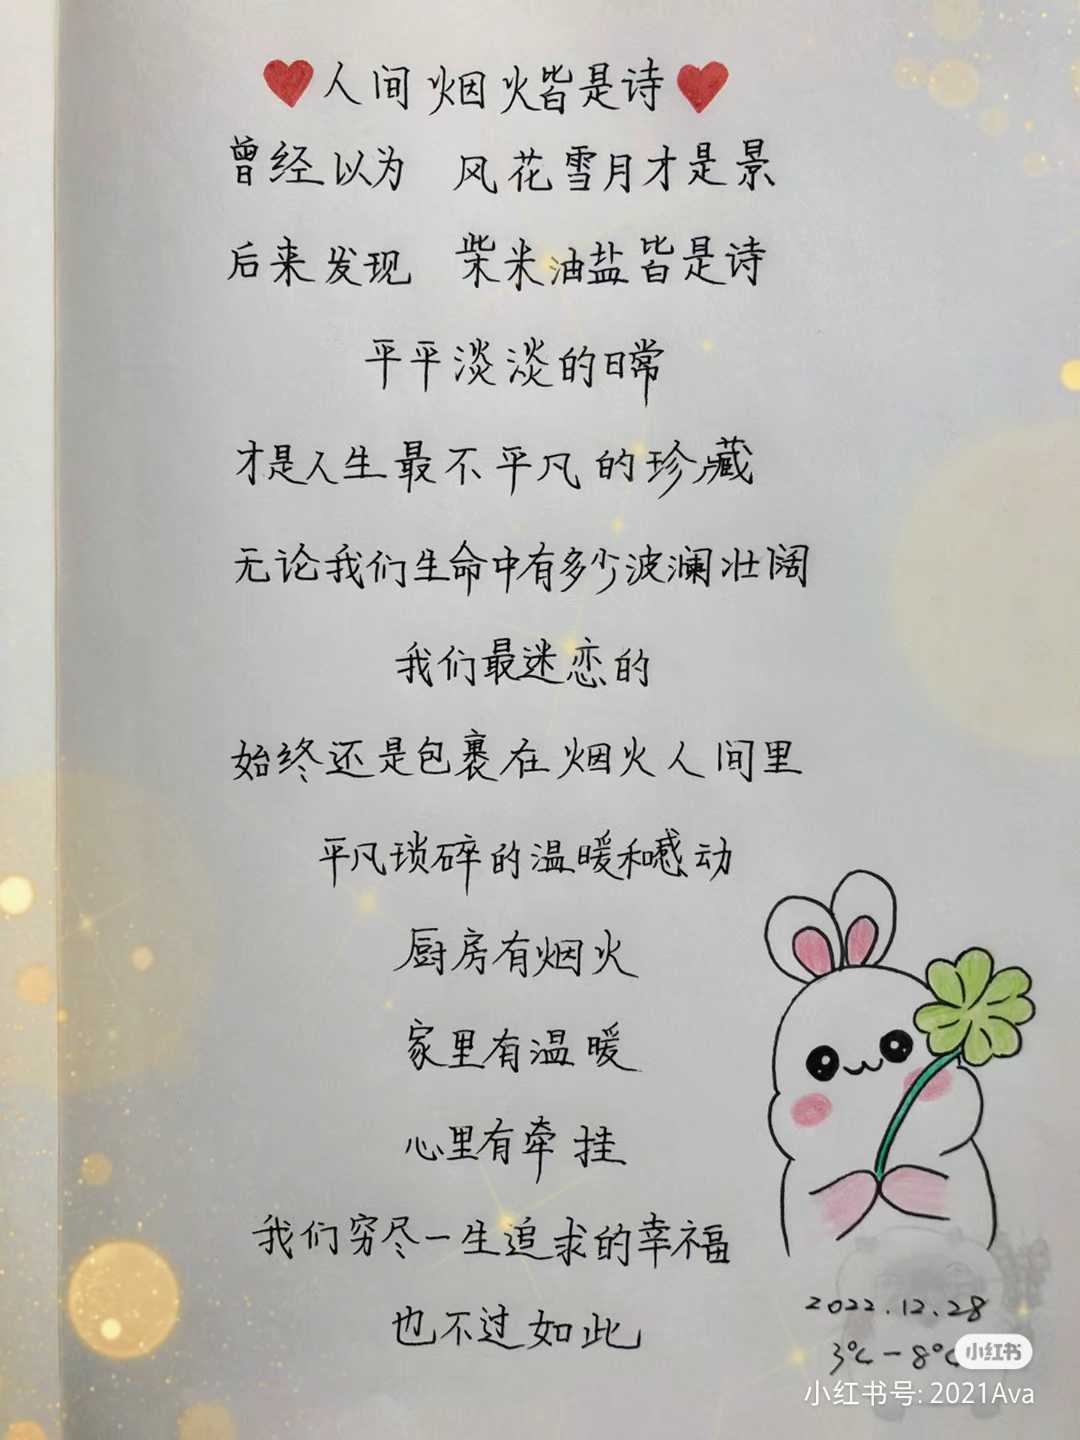 人间烟火皆是诗
曾经以为 风花雪月才是景
后来发现 柴米油盐皆是诗
平平淡淡的日常
才是人生最不平凡的珍藏
无论我们生命中有多少波澜壮阔
我们最迷恋的
始终还是包裹在烟火人间里
平凡琐碎的温暖和感动
厨房有烟火
家里有温暖
心里有牵挂
我们穷尽一生追求的幸福
也不过如此
2022.12.28
3℃-8℃
小红书
小红书号: 2021Ava